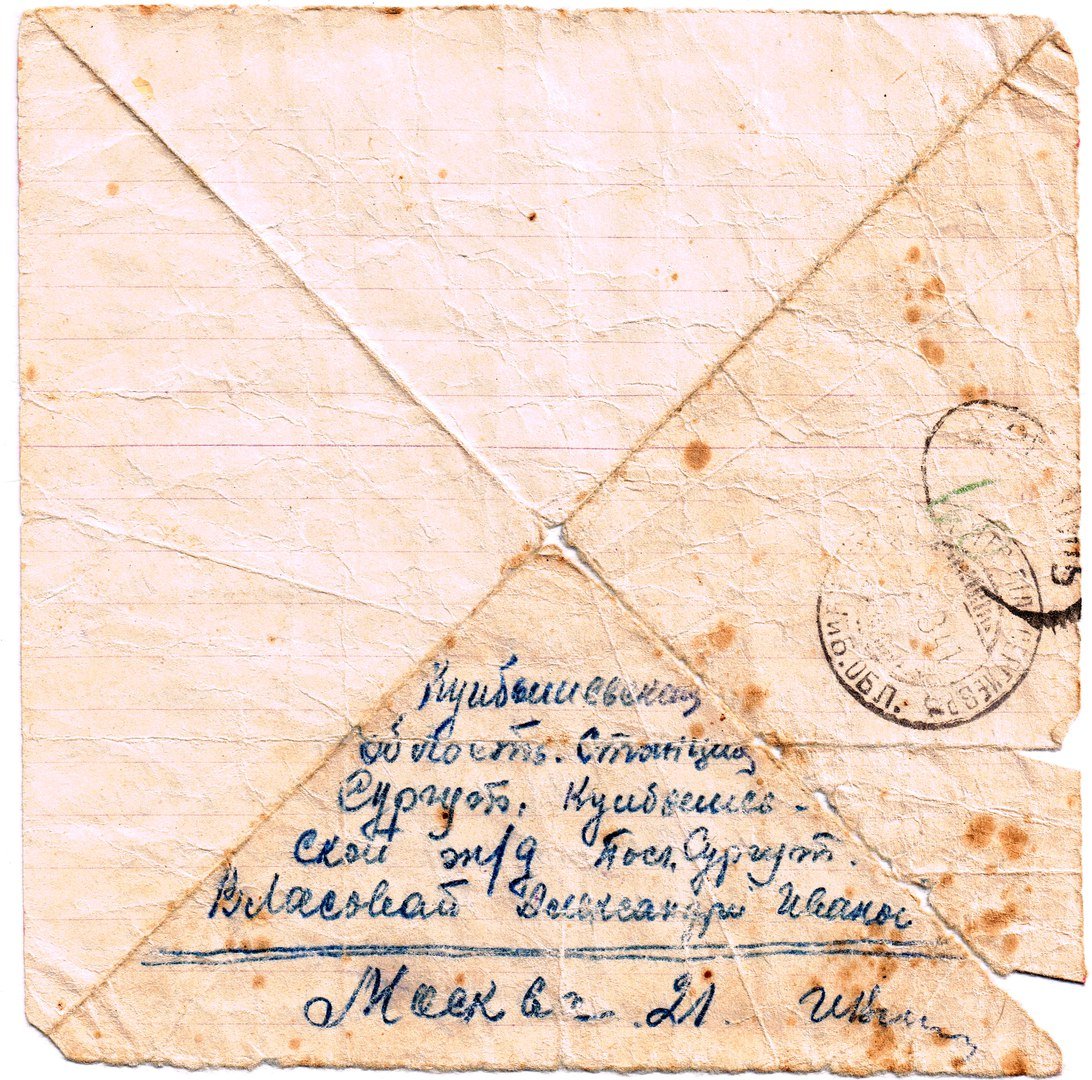 Куйбышевская
область. Станция
Сургут. Куйбышев-
ской ж/д Пос. Сургут.
Власовай Александре Иванов
Москва. 21.
ОБЛ.